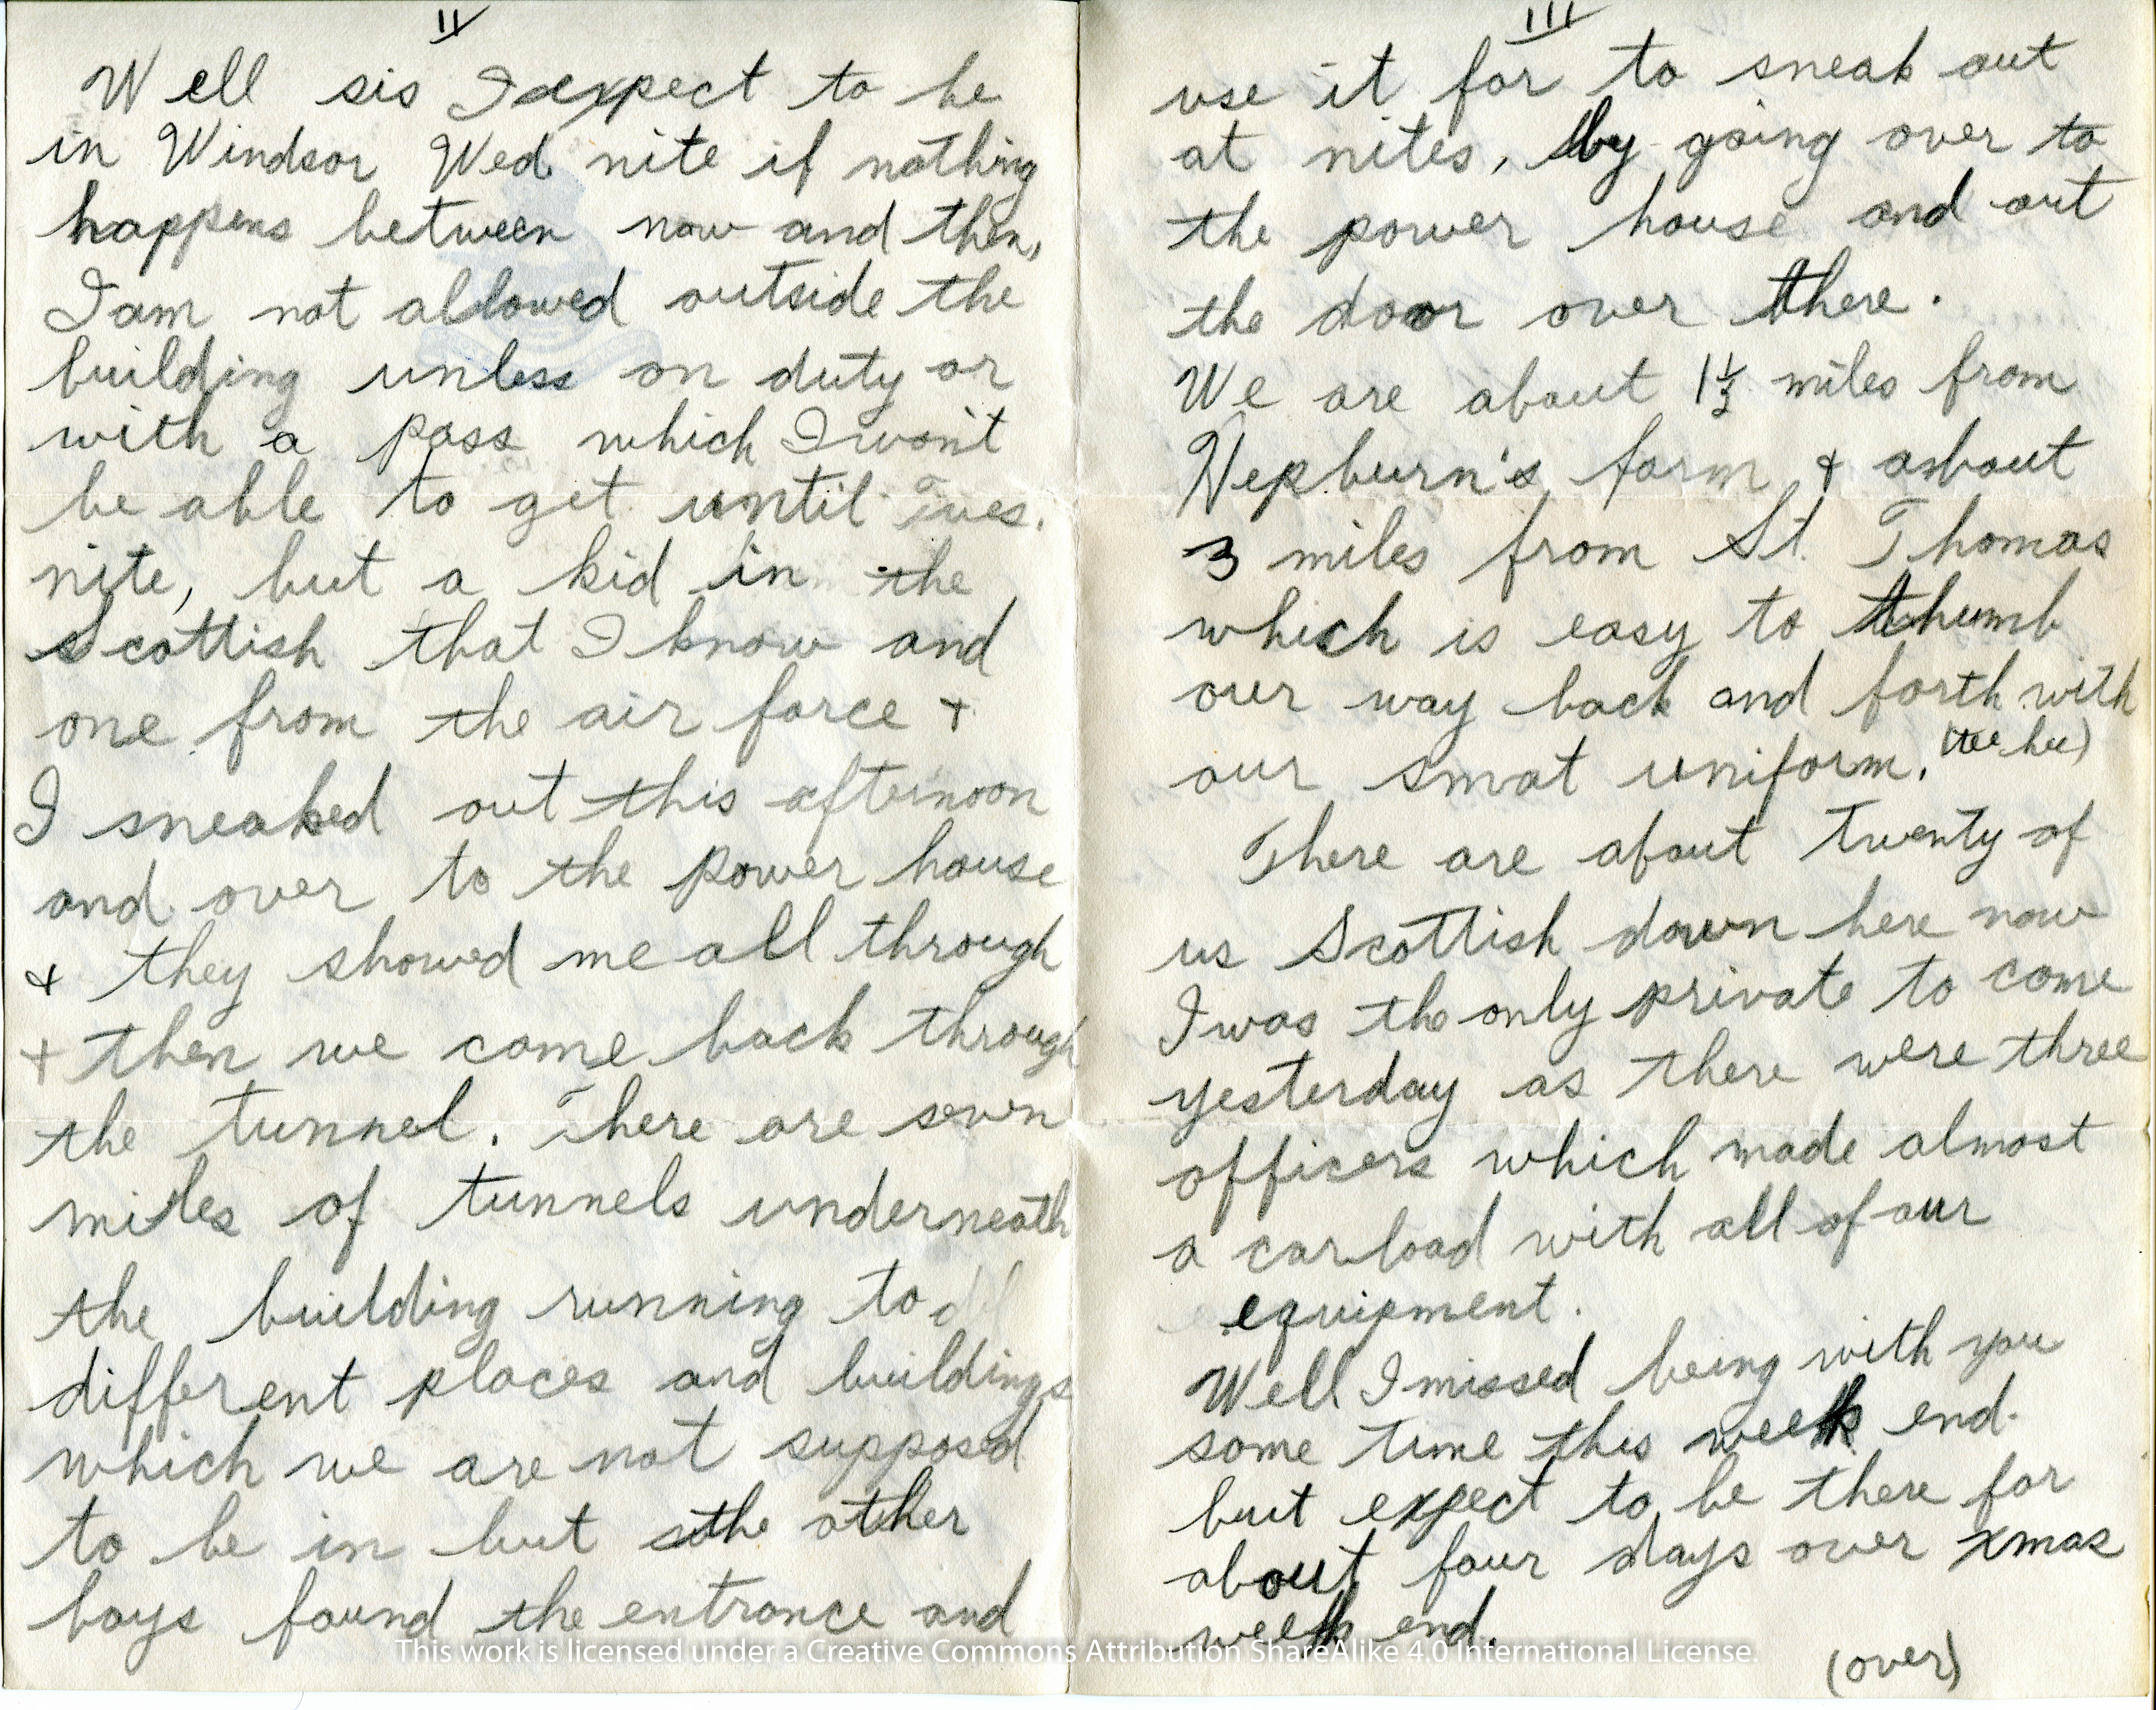 II
Well sis I expect to be
in Windsor Wed nite if nothing
happens between now and then,
I am not allowed outside the
building unless on duty or
with a pass which I won't
be able to get until Tues.
nite, but a kid in the
Scottish that I know and
one from the air force +
I sneaked out this afternoon
and over to the power house
+ they showed me all through
+ then we come back through
the tunnel. There are seven
miles of tunnels underneath
the building running to
different places and buildings
which we are not supposed
to be in but the other
boys found the entrance and
III
use it for to sneak out
at nites, by going over to
the power house and out
the door over there.
We are about 1½ miles from
Hepburn's farm + about
3 miles from St. Thomas
which is easy to thumb
our way back and forth with
our smat uniform. (tee hee)
There are about twenty of
us Scottish down here now
I was the only private to come
yesterday as there were three
officers which made almost
a carload with all of our
equipment.
Well I missed being with you
some time this week end.
but expect to be there for
about four days over xmas
week end.
(over)
This work is licensed under a Creative Commons Attribution ShareAlike 4.0 International License.